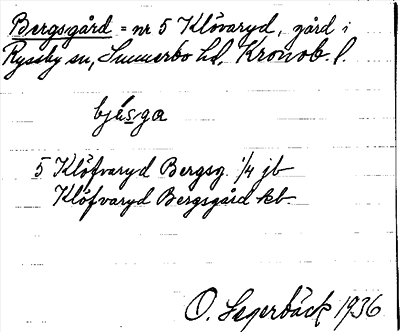 Bergsgård = nr 5 Klövaryd, gård i
Ryssby sn, Sunnerbo hd, Kronob. l.
bjäsga
5 Klöfvaryd Bergsg. 1/4 jb
Klöfvaryd Bergsgård kb.
O. Segerbäck 1936